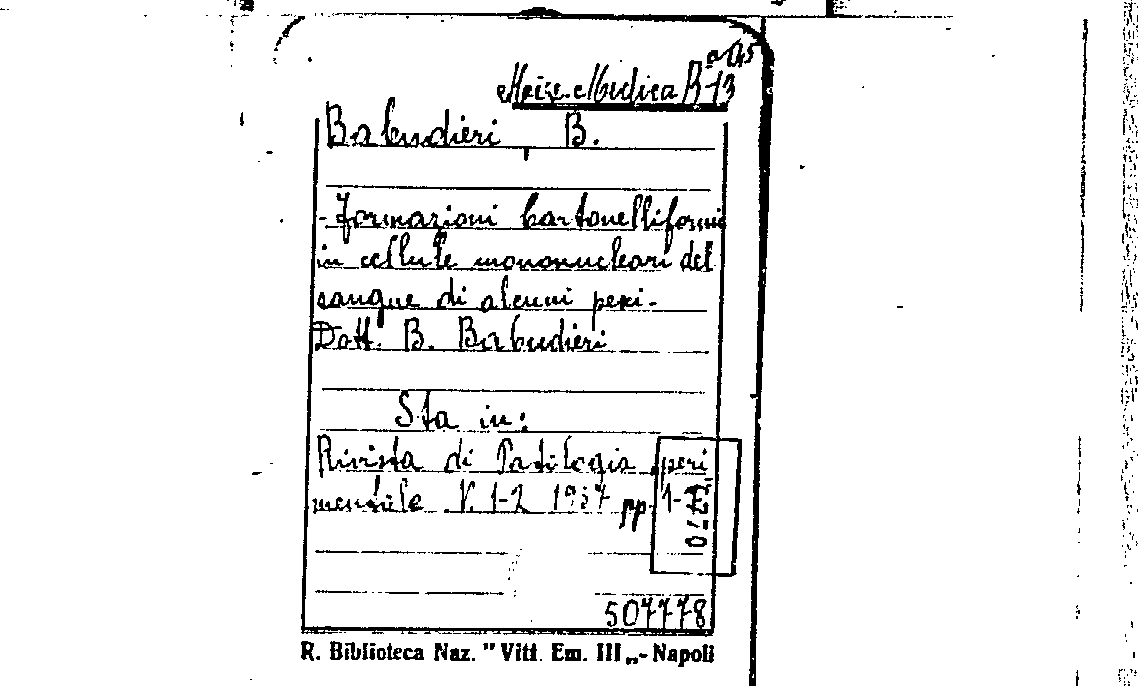 Misc. Medica B 13
Babudieri B.
- Formazioni bartonelliformi
in cellule mononuclear del
sangue di alcuni pesi-
Dott. B. Babudieri
Sta in:
Rivista di Patologia speri
mentale V. 1-2 1937 pp 1-7
507778
R. Biblioteca Naz. "Vitt. Em. III„- Napoli